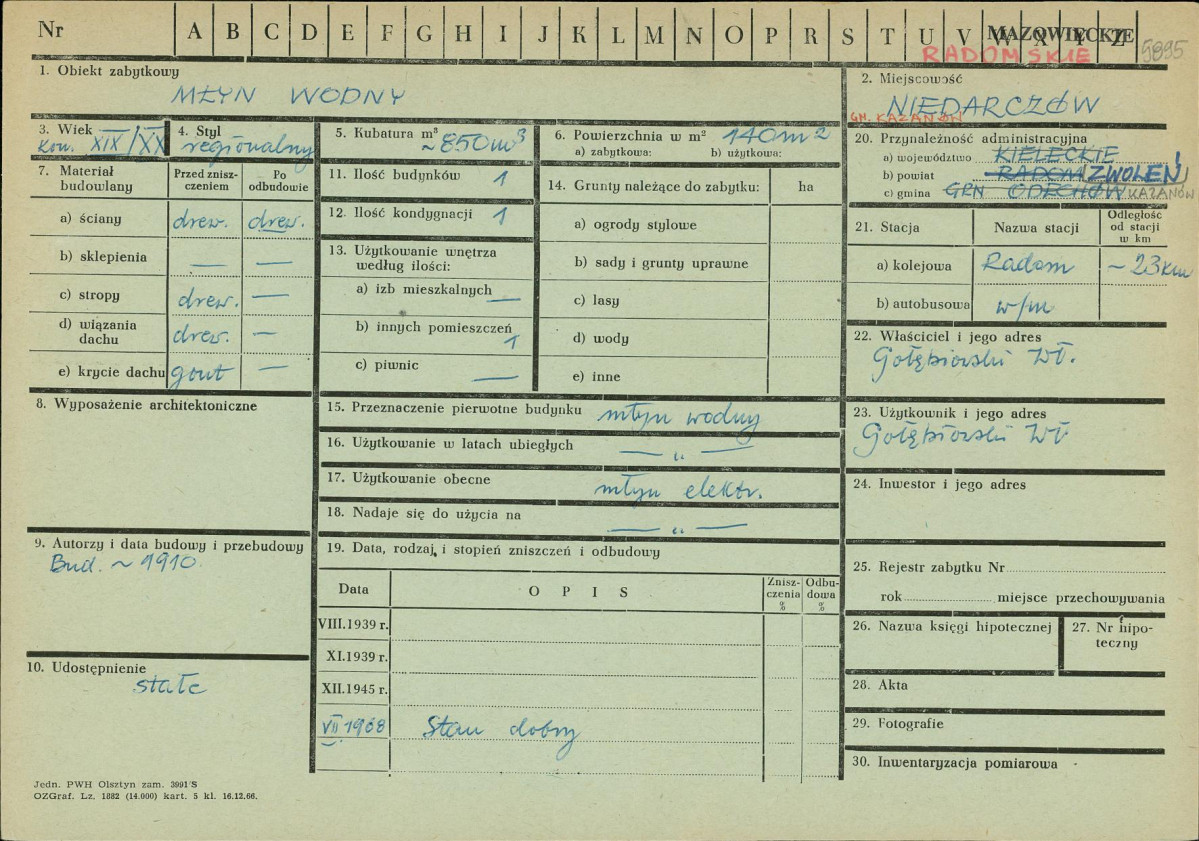 Nr A B C D E F G H I J K L M N O P R S T U V W X Y Z
MAZOWIECKIE
RADOMSKIE
5895
1. Obiekt zabytkowy
MŁYN WODNY
2. Miejscowość
NIEDARCZÓW
GM. KAZANÓW
3. Wiek
kon. XIX/XX
4. Styl
regionalny
5. Kubatura m³
~850m³
6. Powierzchnia w m² 140m²
a) zabytkowa: b) użytkowa:
20. Przynależność administracyjna
a) województwo KIELECKIE
b) powiat RADOM ZWOLEŃ
c) gmina GRN ODECHÓW KAZANÓW
7. Materiał budowlany
Przed znisz-
czeniem
Po
odbudowie
a) ściany drew. drew.
b) sklepienia — —
c) stropy drew. —
d) wiązania
dachu drew. —
e) krycie dachu gont —
11. Ilość budynków 1
12. Ilość kondygnacji 1
13. Użytkowanie wnętrza
według ilości:
a) izb mieszkalnych —
b) innych pomieszczeń
1
c) piwnic —
14. Grunty należące do zabytku: ha
a) ogrody stylowe
b) sady i grunty uprawne
c) lasy
d) wody
e) inne
21. Stacja Nazwa stacji
Odległość
od stacji
w km
a) kolejowa Radom ~23km
b) autobusowa w/m
22. Właściciel i jego adres
Gołębiowski Wł.
8. Wyposażenie architektoniczne
15. Przeznaczenie pierwotne budynku młyn wodny
16. Użytkowanie w latach ubiegłych — „ —
17. Użytkowanie obecne młyn elektr.
18. Nadaje się do użycia na — „ —
23. Użytkownik i jego adres
Gołębiowski Wł
24. Inwestor i jego adres
9. Autorzy i data budowy i przebudowy
Bud. ~1910.
19. Data, rodzaj, i stopień zniszczeń i odbudowy
Data OPIS
Znisz-
czenia
%
Odbu-
dowa
%
VIII.1939 r.
XI.1939 r.
XII.1945 r.
VII 1968 Stan dobry
10. Udostępnienie
stałe
25. Rejestr zabytku Nr
rok miejsce przechowywania
26. Nazwa księgi hipotecznej
27. Nr hipo-
teczny
28. Akta
29. Fotografie
30. Inwentaryzacja pomiarowa
Jedn. PWH Olsztyn zam. 3991/S
OZGraf. Lz. 1882 (14.000) kart. 5 kl. 16.12.66.